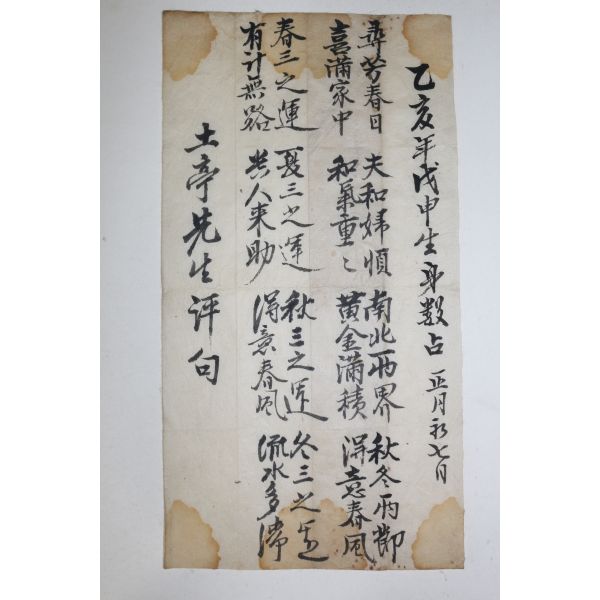 乙亥年戊申生身数占 正月初七日
尋芳春日 夫和婦順 南北兩界 秋冬兩節
喜滿家中 和氣重〻 黃金滿積 得意春風
春三之運 夏三之運 秋三之運 冬三之運
有計無路 人来助 得意春風 流水多滯
土亭先生評句